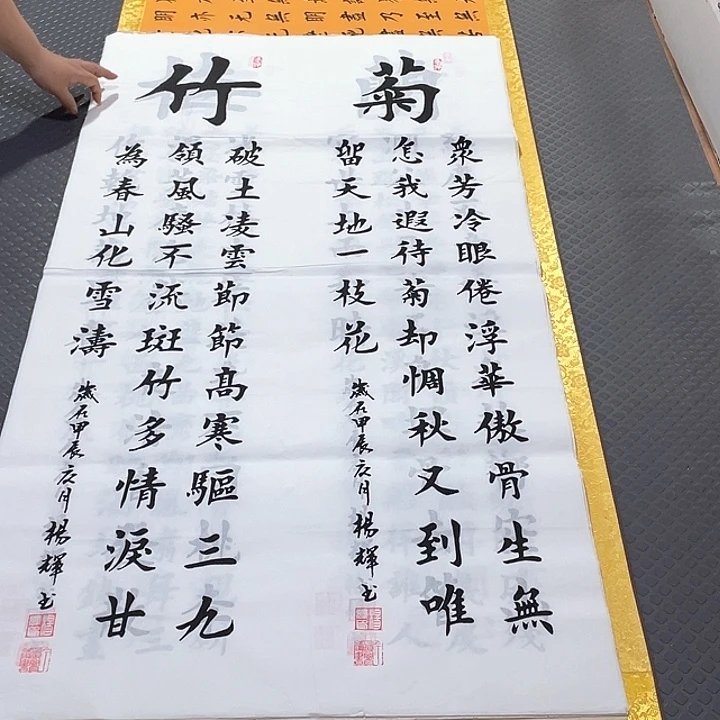 菊
衆芳冷眼倦浮華傲骨生無
怎我遐待菊却惆秋又到唯
留天地一枝花
歲在甲辰月楊輝书
竹
破土凌雲節節高寒驅三九
領風騷不流斑竹多情淚甘
為春山化雪濤
歲在甲辰月楊輝书